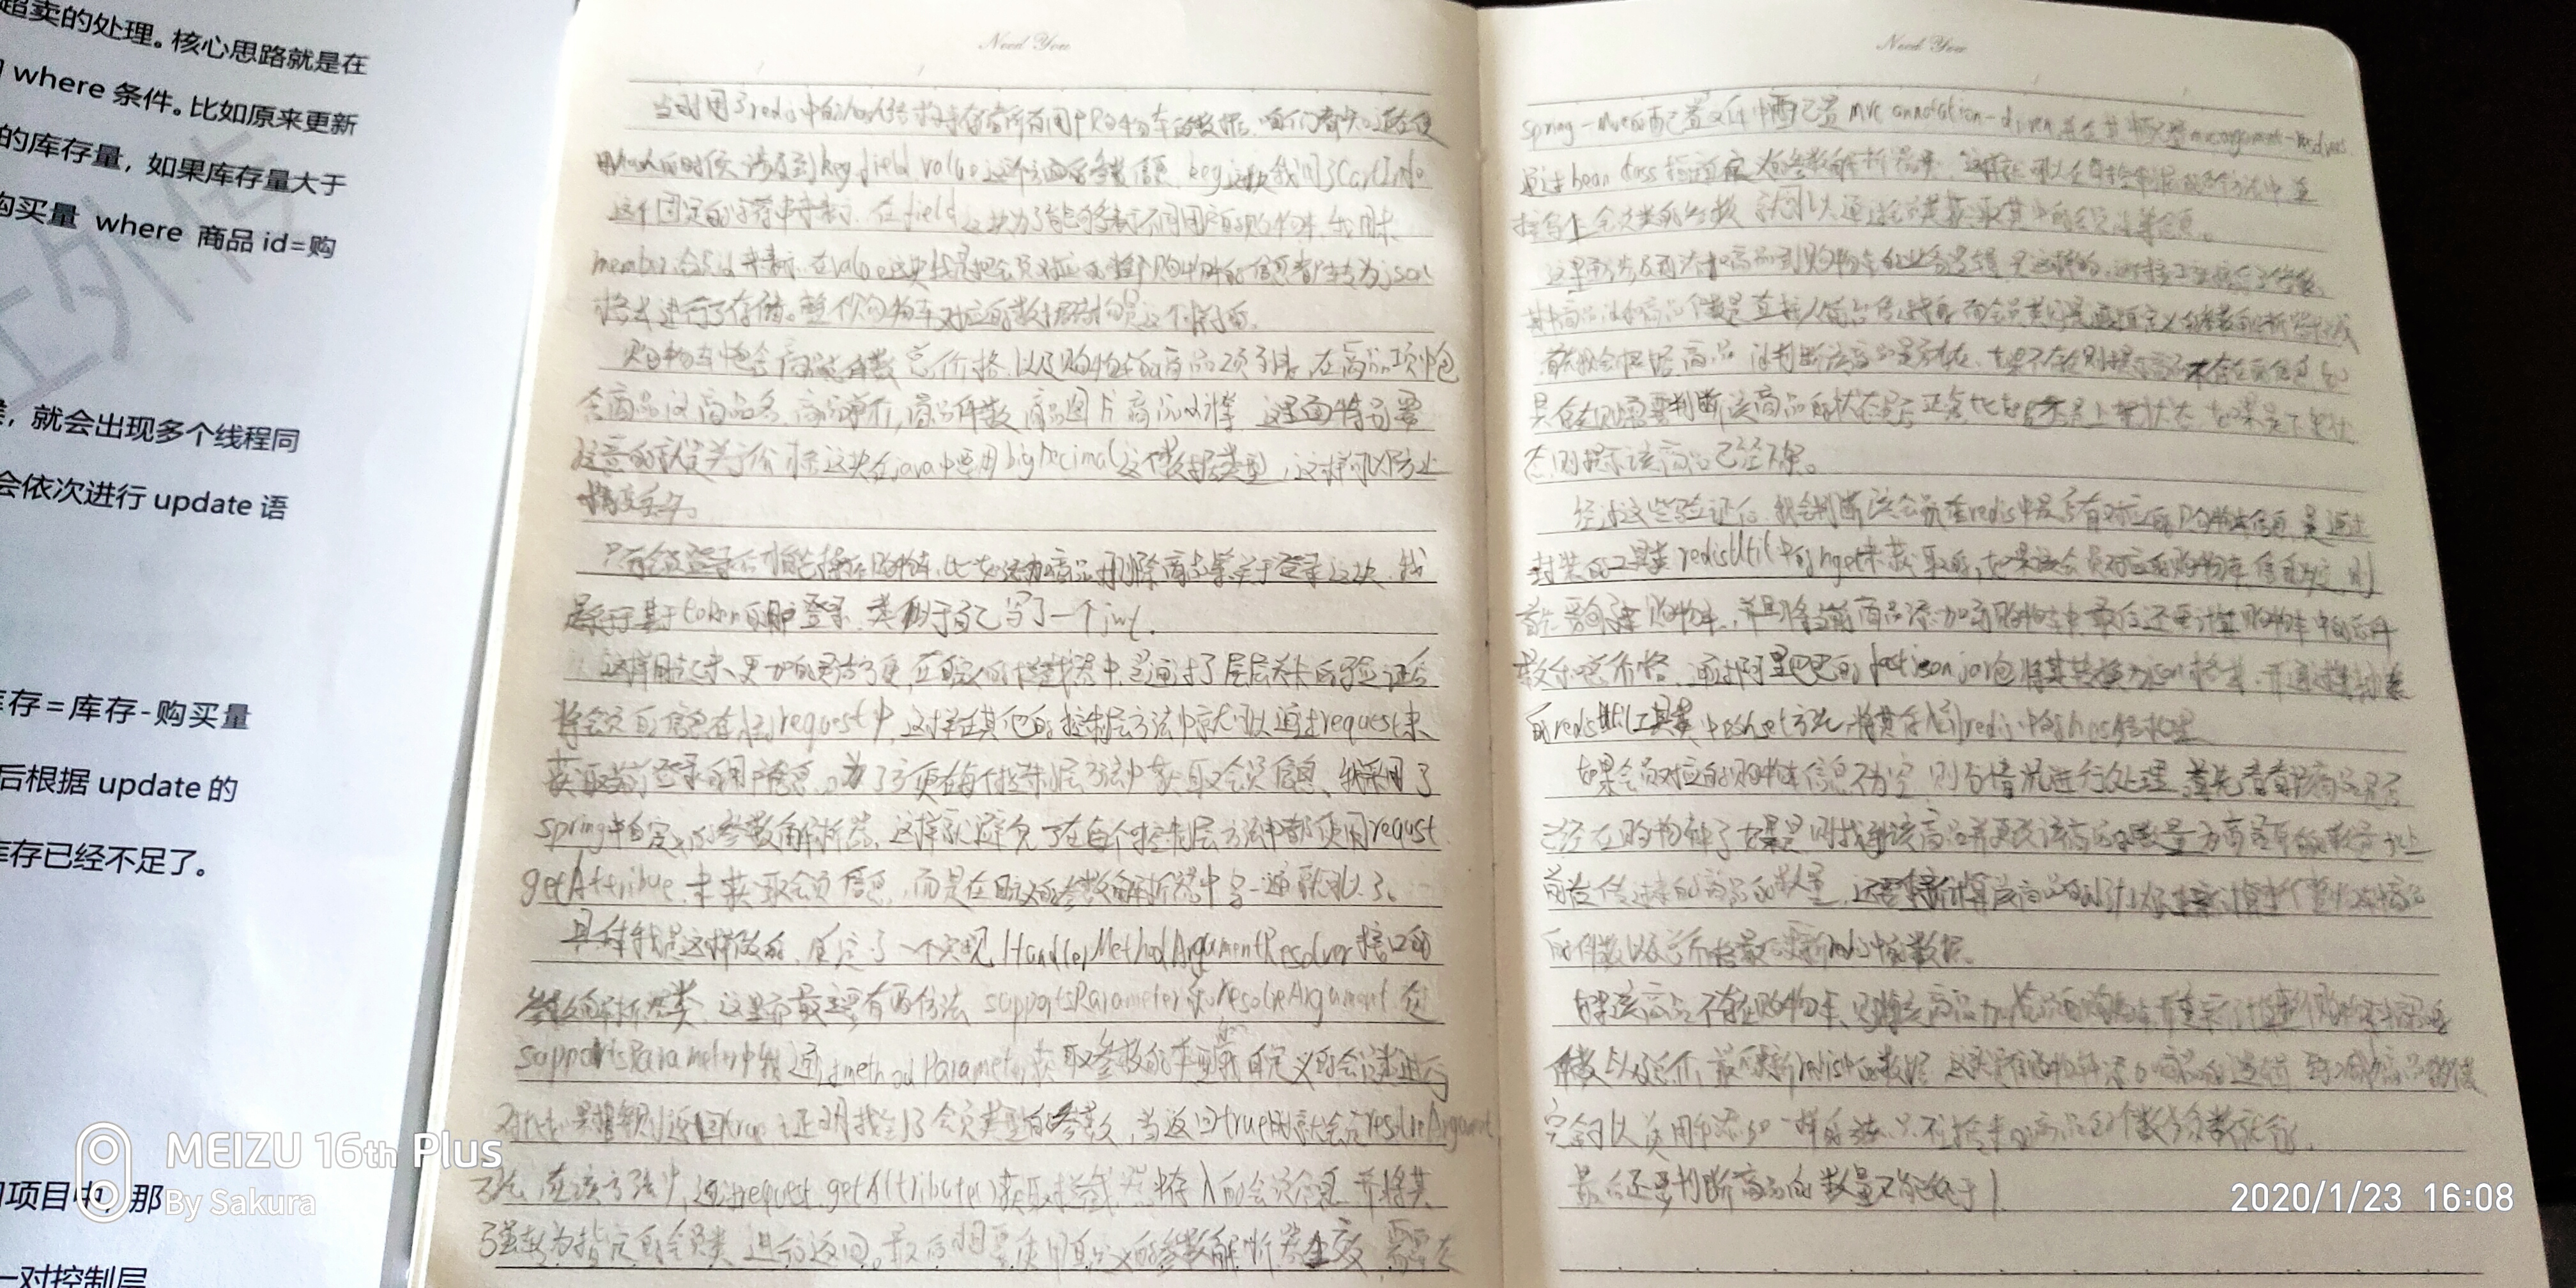 超卖的处理。核心思路就是在
where 条件。比如原来更新
的库存量，如果库存量大于
购买量 where 商品 id=购
外传
，就会出现多个线程同
会依次进行 update 语
库存=库存-购买量
后根据 update 的
库存已经不足了。
项目中，那
一对控制层
MEIZU 16th Plus
By Sakura
Need You
当时用了redis中的hash结构来存储所有用户购物车的数据，咱们都知道在使
用hash的时候，涉及到key field value这个方面的参数信息，key这块我用了CartInfo
这个固定的字符串来标示，在field这块为了能够标示不同用户的购物车，我用来
member:会员id来标示，在value这块我是把会员对应的整个购物车的信息都转为json
格式进行了存储。整个购物车对应的数据结构是这个样子的。
购物车中包含商品总个数 总价格，以及购物车的商品项列表，在商品项中包
含商品id 商品名，商品单价，商品件数 商品图片 商品小计等 这里面特别需
注意的就是关于价格这块在java中要用bigDecimal这个数据类型，这样可以防止
精度丢失。
只有会员登录后才能操作购物车，比如添加商品 删除商品等 关于登录这块，我
是采用基于token的用户登录，类似于自己写了一个jwt.
这样用起来更加的灵活方便，在自定义的拦截器中，当通过了层层关卡的验证后
将会员的信息存储到request中，这样在其他的控制层方法中就可以通过request来
获取当前登录的用户信息，为了方便在每个控制层方法中获取会员信息，我采用了
spring中自定义的参数解析器，这样就避免了在每个控制层方法中都使用requst
getAttribue 来获取会员信息，而是在自定义的参数解析器中写一遍就可以了。
具体我是这样做的，自定了一个实现HandlerMethodArgumentResolver接口的
参数解析类，这里面最主要有两个方法 supportsParameter和resolveArgument 在
supportsParameter中我通过methodParameter获取参数的类型和我自定义的会员类进行
对比，如果相等则返回true，证明找到了会员类型的参数，当返回true时就会走resolveArgument
方法，在该方法中，通过request.getAttribute()获取拦截器中存入的会员信息，并将其
强转为指定的会员类 进行返回。最后如果要使用自定义的参数解析器生效，需要在
Need You
spring-mvc的配置文件中配置 mvc annotation-driven 并在其中配置mvc:argument-resolvers
通过bean class指定自定义的参数解析器来 这样就可以在每个控制层的各个方法中直
接写上会员类的参数，就可以通过会员类获取其中的会员id等信息。
这里面涉及到添加商品到购物车的业务逻辑是这样的，
其中商品id和商品个数是直接从前台传过来的 而会员类则是通过自定义的参数解析器生成
首先我会根据 商品id判断该商品是否存在，如果不存在则提示商品不存在的信息 如
果存在则需要判断该商品的状态是否正常 比如是不是上架状态，如果是下架状
态，则提示该商品已经下架。
经过这些验证后，我会判断该会员在redis中是否有对应的购物车信息，是通过
封装的工具类redisUtil中的hget来获取的，如果该会员对应的购物车信息为空，则
首先要创建购物车，并且将当前商品添加到购物车中 最后还要计算购物车中的总件
数和总价格，通过阿里巴巴的fastjson jar包将其转换为json格式，并通过封装
的redisUtil工具类中的hset方法，将其存入到redis中的hash结构里
如果会员对应的购物车信息不为空，则分情况进行处理，首先查看该商品是否
已经在购物车了 如果是 则找到该商品并更改该商品的数量为原有的数量加上
前台传过来的商品的数量，还要重新计算该商品的小计以及重新计算整个购物车商品
的件数以及总价格最后更新redis中的数据。
如果该商品不在购物车，则将该商品加入到购物车并重新计算整个购物车商品总
件数以及总价，最后更新redis中的数据 这就是往购物车添加商品的逻辑 至于减商品的数量
完全可以使用和添加一样的方法，只不过传来的商品的个数为负数就行。
最后还要判断商品的数量不能低于1
2020/1/23 16:08